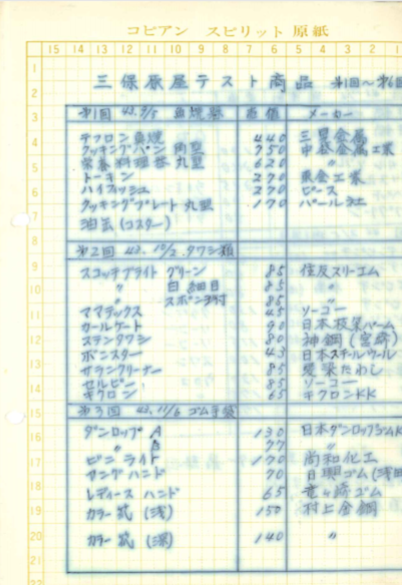 コピアン スピリット原紙
15 14 13 12 11 10 9 8 7 6 5 4 3 2 1
三保原屋テスト商品 第1回〜第6回
第1回 42. 9/5 魚焼器 売価 メーカー
テフロン魚焼 440 三星金属
クッキングパン 角型 750 中谷金属工業
栄養料理器 丸型 620 〃
トーキン 270
ハイフィッシュ 270 ピース
クッキングプレート丸型 170 パール
油缶(コスター)
第2回 42. 10/2. タワシ類
スコッチブライト グリーン 85 住友スリーエム
〃 白 細目 85 〃
〃 スポンヂ付 85 〃
ママデックス 45 ソーコー
カールゲート 90 日本
ステンタワシ 80 神鋼
ボンスター 43 日本スチールウール
サランクリーナー 85 たわし
セルビー 85 ソーコー
キクロン 65 キクロンKK
第3回 42. 11/6 ゴム手袋
ダンロップ A 130 日本ダンロップゴムK
〃 B 77 〃
ビニライト 170 尚和化工
ヤングハンド 70 日興ゴム
レディースハンド 65 竜ヶ崎ゴム
カラー 式 (浅) 150 村上金鋼
カラー 式 (深) 140 〃
1
2
3
4
5
6
7
8
9
10
11
12
13
14
15
16
17
18
19
20
21
22